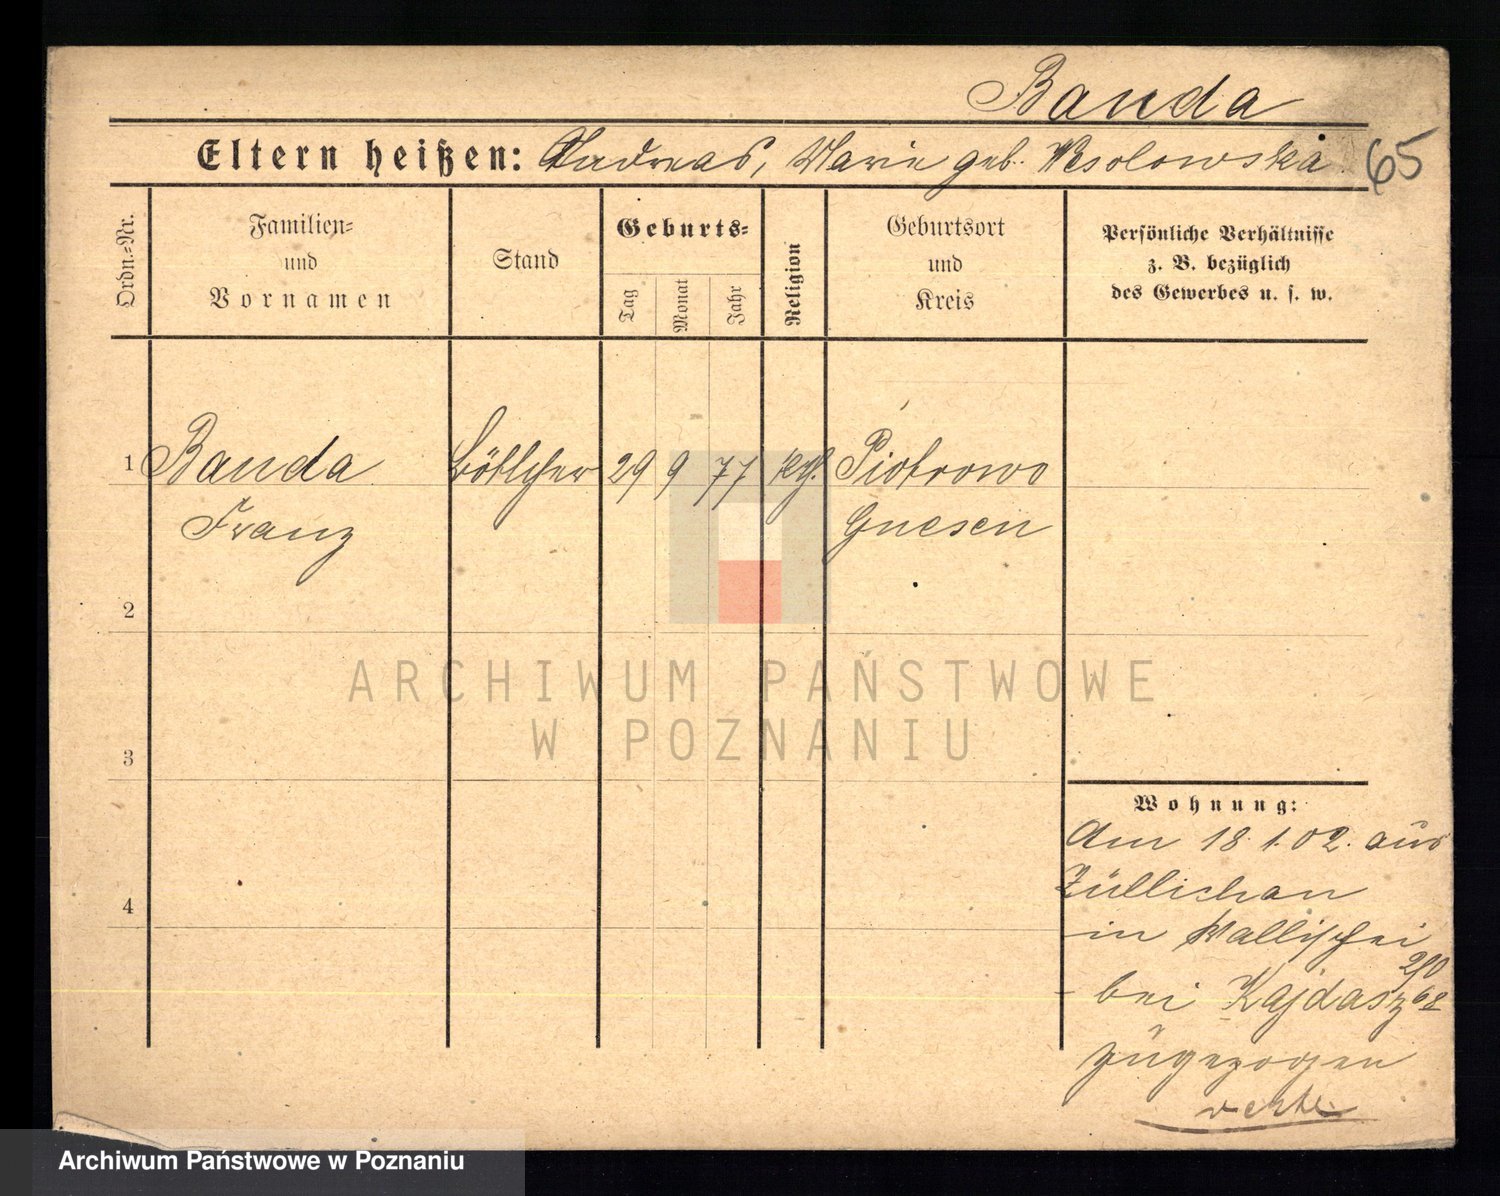 Banda
Eltern heißen: Andreas, Marie geb. Wesolowska.
65
Ordn.-Nr.
Familien-
und
Vornamen
Stand
Geburts-
Tag
Monat
Jahr
Religion
Geburtsort
und
Kreis
Persönliche Verhältnisse
z. B. bezüglich
des Gewerbes u. s. w.
1 Banda Böttcher 29 9 77 kth. Piotrowo
Franz Gnesen
2
3
4
ARCHIWUM PAŃSTWOWE
W POZNANIU
Wohnung:
Am 18.1.02. aus
Züllichau
in Wallischei
bei Kajdasz
zugezogen
verte
Archiwum Państwowe w Poznaniu